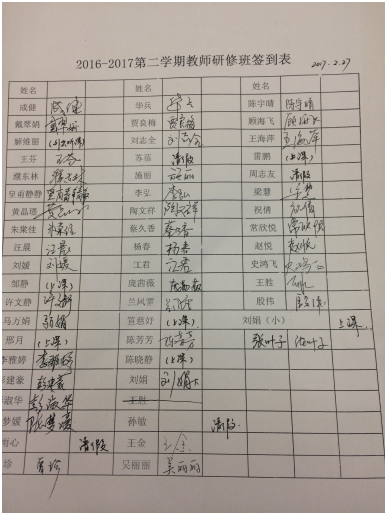 2016-2017第二学期教师研修班签到表 2017.2.27
姓名 姓名 姓名
成健 成健 华兵 华兵 陈宇晴 陈宇晴
戴翠娟 戴翠娟 贾良梅 贾良梅 顾海飞 顾海飞
解维丽 刘志全 刘志全 王海萍 王海萍
王芬 王芬 苏蓓 请假 雷鹏 (上课)
濮东林 濮东林 施丽 施丽 周志友 请假
皇甫静静 皇甫静静 李弘 李弘 梁慧 梁慧
黄晶璟 陶文祥 陶文祥 祝倩 祝倩
朱棠佳 朱棠佳 蔡久香 蔡久香 常欣悦 常欣悦
汪晨 汪晨 杨春 杨春 赵悦 赵悦
刘媛 刘媛 江君 江君 史鸿飞 史鸿飞
邹静 (上课) 庞茜薇 庞茜薇 王胜 王胜
许文静 许文静 兰凤霏 殷伟 殷伟
马万娟 笪慈好 (上课) 刘娟(小) 上课
邢月 (上课) 陈芳芳 陈芳芳 张叶子 张叶子
李雅婷 李雅婷 陈晓静 (上课)
彭建豪 彭建豪 刘娟 刘娟大
彭淑华 彭淑华 王胜
梦媛 张梦媛 孙敏 请假
心 请假 王金 王金
珍 曹珍 吴丽丽 吴丽丽